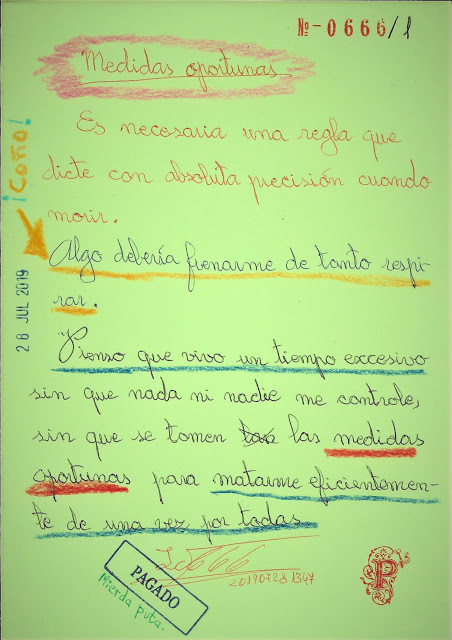 Nº-0666/1
Medidas oportunas
¡COÑO!
Es necesaria una regla que
dicte con absoluta precisión cuando
morir.
Algo debería frenarme de tanto respi-
rar.
28 JUL 2019
Pienso que vivo un tiempo excesivo
sin que nada ni nadie me controle,
sin que se tomen las medidas
oportunas para matarme eficientemen-
te de una vez por todas.
20190728 1347
PAGADO
Mierda puta.
P